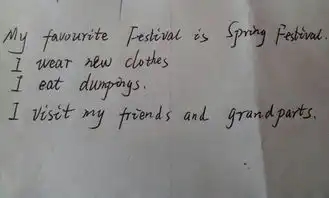 My favourite Festival is Spring Festival.
I wear new clothes
I eat dumpings.
I visit my friends and grandparts.